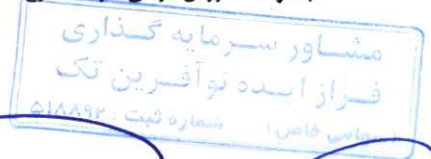 مشاور سرمایه گذاری
فراز ایده نوآفرین تک
سهامی خاص ؛ شماره ثبت : ۵۱۸۸۹۲